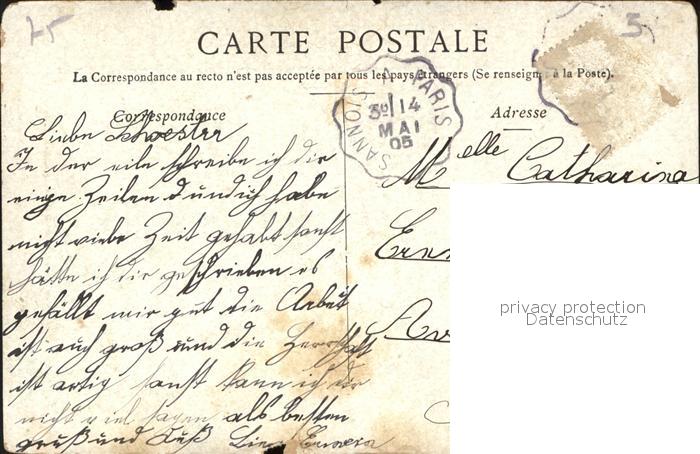 75
5
CARTE POSTALE
La Correspondance au recto n'est pas acceptée par tous les pays étrangers (Se renseigner à la Poste).
Correspondance
Adresse
SANNOIS A PARIS
3e 14
MAI
05
Liebe Schwester
In der eile schreibe ich dir
einige Zeilen d und ich habe
nicht viele Zeit gehabt sonst
hätte ich dir geschrieben es
gefällt mir gut die Arbeit
ist auch groß und die Herrschaft
ist artig sonst kann ich dir
nicht viel sagen als besten
gruß und Kuß
Melle Catharina
privacy protection
Datenschutz